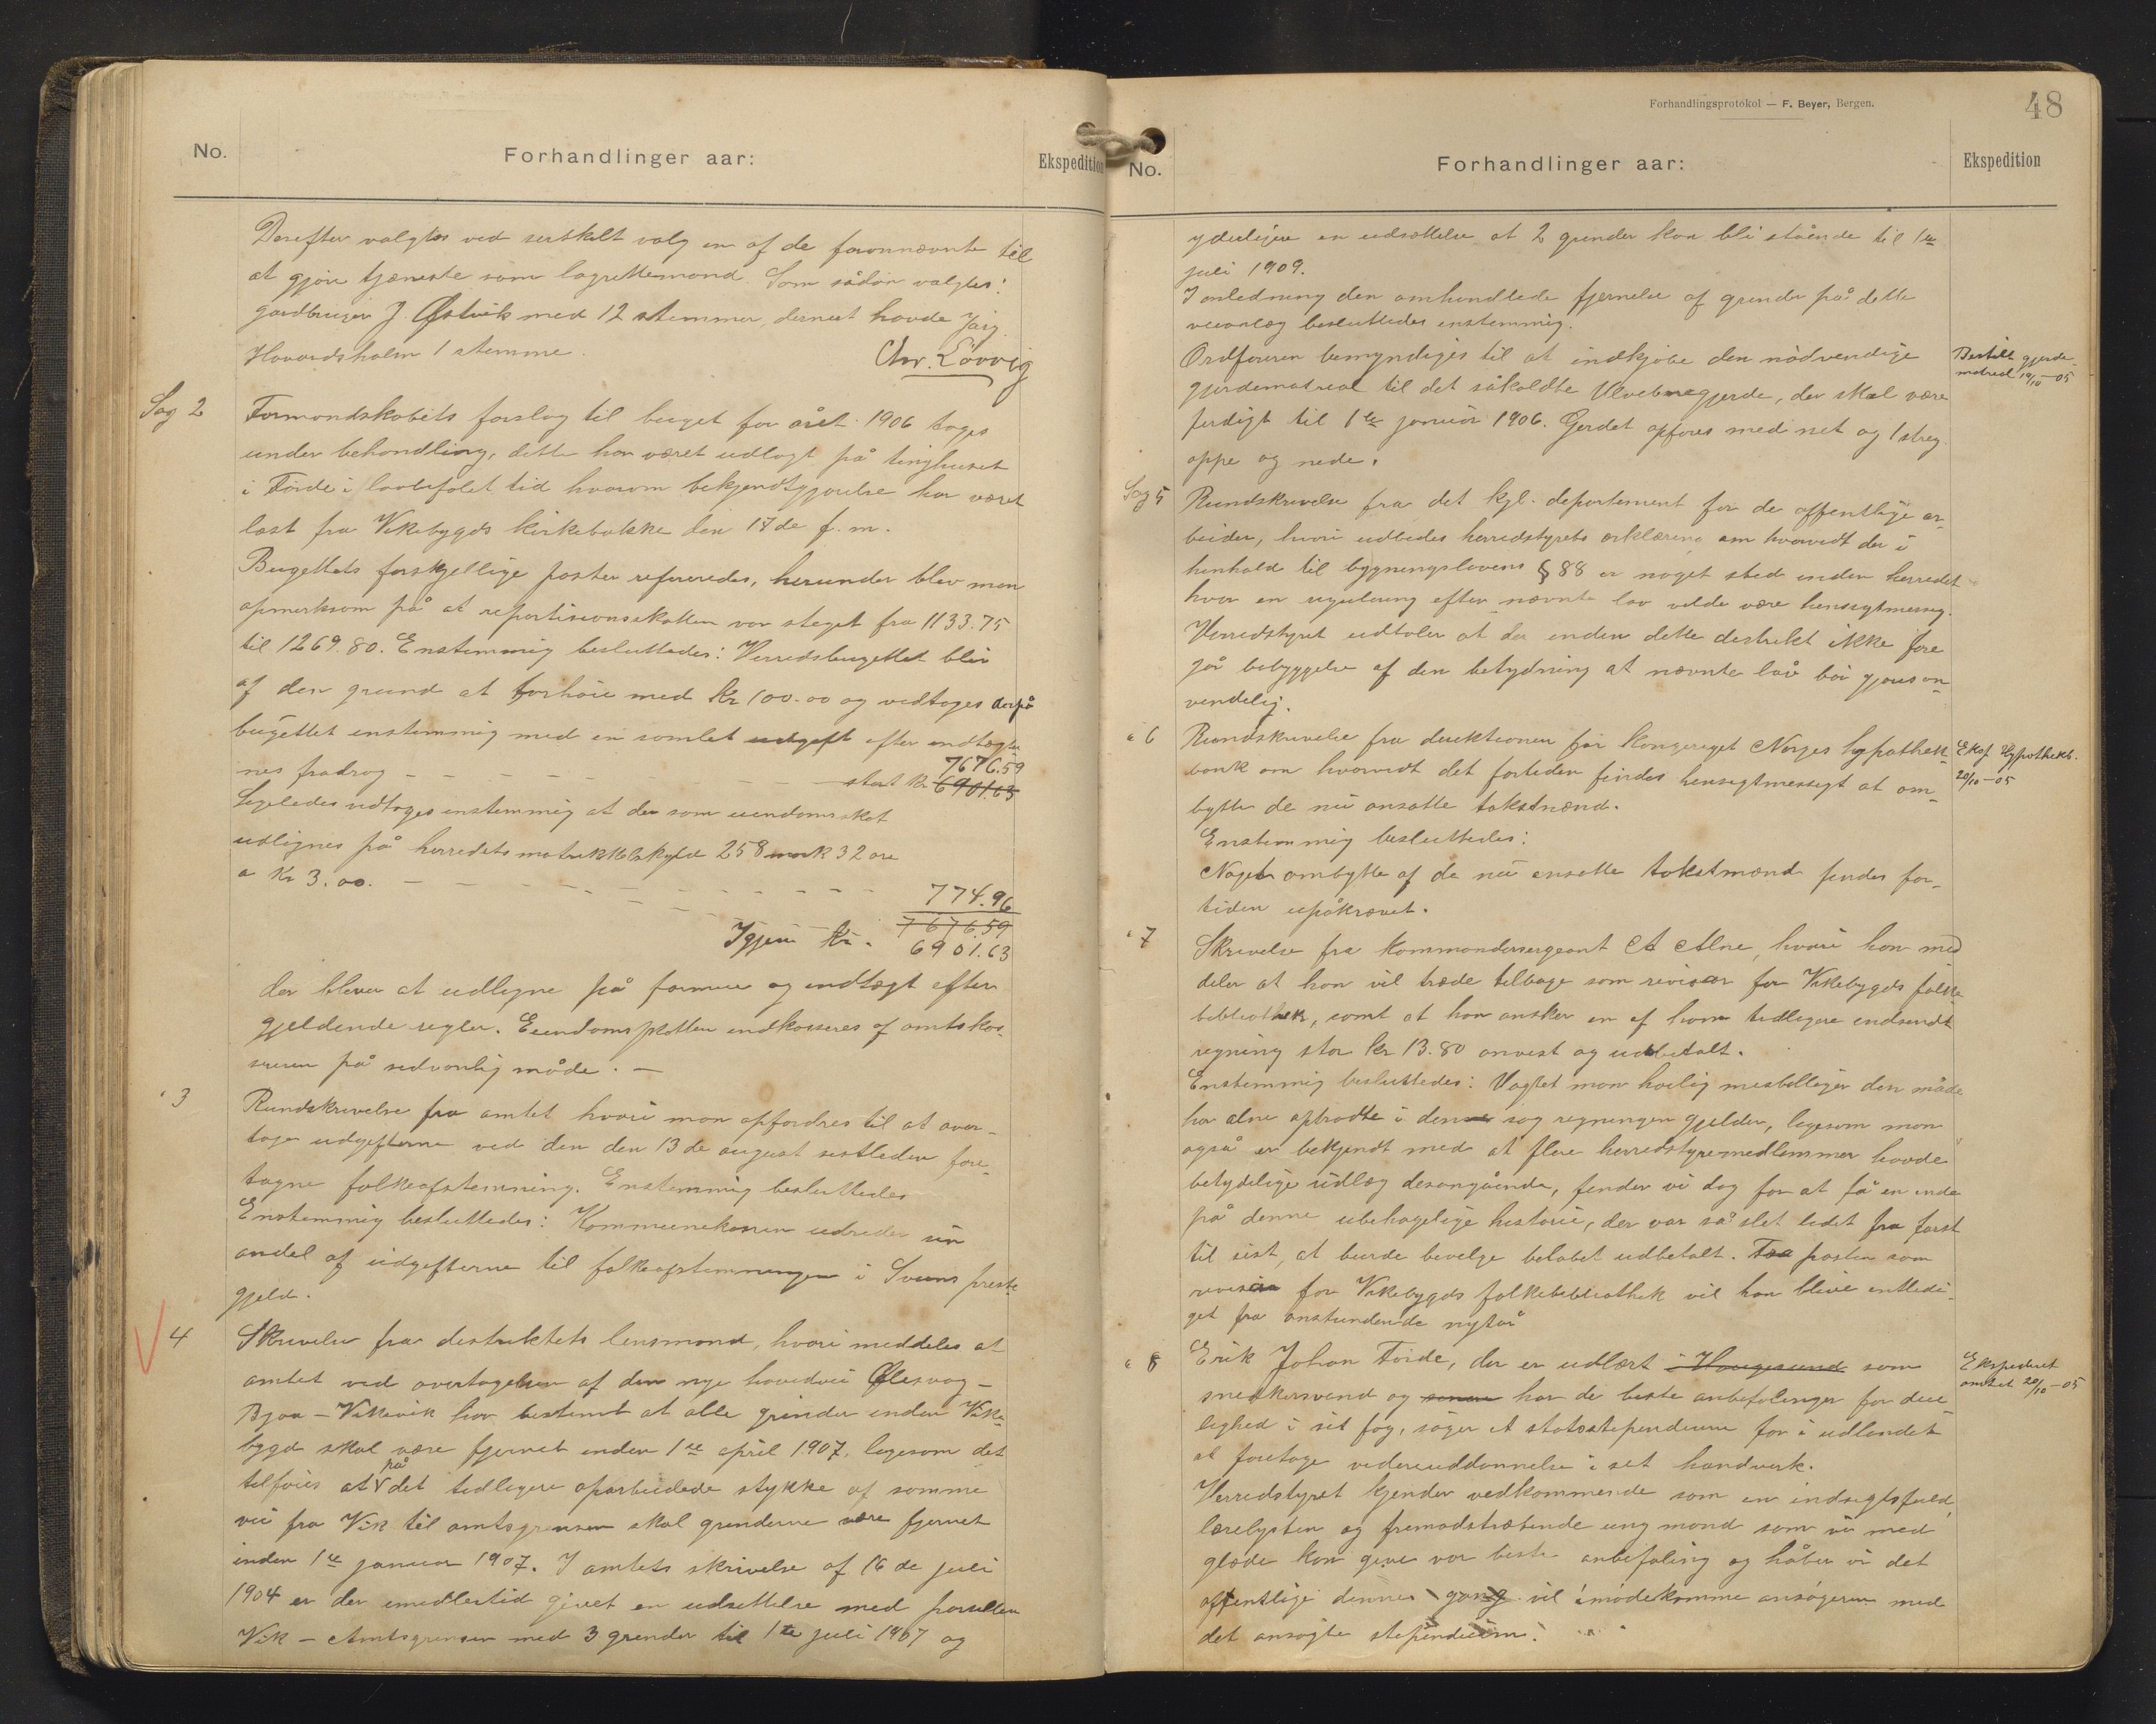 No.
Forhandlinger aar:
Ekspedition
Derefter valgtes ved serskilt valg en af de fornævnte til
at gjøre tjæneste som lagrettemand Som sådan valgtes:
gardbruger J. Østvik med 12 stemmer, dernest havde Jørg.
Havardsholm 1 stemme.
Chr. Løvvig
Sag 2
Formandskabets forslag til buget for året 1906 toges
under behandling, dette har været udlagt på tinghuset
i Førde i lovbefalet tid hvorom bekjendtgjørelse har været
læst fra Vikebygds kirkebakke den 17de f. m.
Bugettets forskjellige poster refereredes, herunder blev man
opmerksom på at repartisionsskatten var steget fra 1133.75
til 1269.80. Enstemmig besluttedes: Herredsbugettet blir
af den grund at forhøie med kr 100.00 og vedtoges derpå
bugettet enstemmig med en samlet udgift efter indtægter
nes fradrag – – – – – – – – – stort kr 6901.63
7676.59
Ligeledes vedtoges enstemmig at der som eiendomsskat
udlignes på herredets matrikkelskyld 258 mark 32 øre
a kr 3.00. – – – – – – – – – – – – 774.96
7676.59
Igjen kr. 6901.63
der bliver at udligne på formue og indtægt efter
gjeldende regler. Eiendomsskatten indkasseres af amtskas-
sereren på sedvanlig måde. –
" 3
Rundskrivelse fra amtet hvori man opfordres til at over-
tage udgifterne ved den den 13de august sistleden fore-
tagne folkeafstemning. Enstemmig besluttedes
Enstemmig besluttedes: Kommunekassen udreder sin
andel af udgifterne til folkeafstemningen i Sveens preste
gjeld.
4
Skrivelse fra destriktets lensmand, hvori meddeles at
amtet ved overtagelsen af den nye hovedvei Ølesvåg –
Bjoa – Vikevik har bestemt at alle grinder inden Vike-
bygd skal være fjernet inden 1ste april 1907, ligesom det
tilføies at på det tidligere oparbeidede stykke af samme
vei fra Vik til amtsgrensen skal grinderne være fjernet
inden 1ste januar 1907. I amtets skrivelse af 16de juli
1904 er der imidlertid givet en udsettelse med parsellen
Vik – Amtsgrensen med 3 grender til 1ste juli 1907 og
Forhandlingsprotokol — F. Beyer, Bergen.
48
No.
Forhandlinger aar:
Ekspedition
yderligere en udsættelse at 2 grender kan bli stående til 1ste
juli 1909.
I anledning den omhandlede fjernelse af grender på dette
veeanlæg besluttedes enstemmig.
Ordføreren bemyndiges til at indkjøbe den nødvendige
gjerdematreal til det såkaldte Ulvebnegjerde, der skal være
ferdigt til 1ste januar 1906. Gerdet opføres med net og 1 streg
oppe og nede.
Bestilt gjerde
matreal 19/10–05
Sag 5
Rundskrivelse fra det kgl. departement for de offentlige ar-
beider, hvori udbedes herredstyrets erklæring om hvorvidt der i
henhold til bygningslovens § 88 er noget sted inden herredet
hvor en regulering efter nævnte lov vilde være hensigtmessig.
Herredstyret udtaler at der inden dette destrikt ikke fore
går bebyggelse af den betydning at nævnte lov bør gjøres an-
vendelig.
" 6
Rundskrivelse fra direktionen for kongeriget Norges hypothek-
bank om hvorvidt det fortiden findes hensigtmessigt at om-
bytte de nu ansatte takstmænd.
Enstemmig besluttedes:
Noget ombytte af de nu ansatte takstmænd findes for-
tiden upåkrævet.
Eksp. Hypothekb.
20/10–05
" 7
Skrivelse fra kommandersergeant A Alne, hvori han med
deler at han vil træde tilbage som revisor for Vikebygds folke
bibliothek, samt at han ønsker en af ham tidligere indsendt
regning stor kr 13.80 anvist og udbetalt.
Enstemmig besluttedes: Uagtet man høilig misbilliger den måde
hr alne optrådte i denne sag regningen gjelder, ligesom man
også er bekjendt med at flere herredstyremedlemmer havde
betydelige udlæg desangående, finder vi dog for at få en ende
på denne ubehagelige historie, der var så slet ledet fra først
til sist, at burde bevilge beløbet udbetalt. Fra posten som
revisor for Vikebygds folkebibliothek vil han blive entledi-
get fra anstundende nytår
" 8
Erik Johan Førde, der er udlært i Haugesund som
snedkersvend og senere har de beste anbefalinger for due-
lighed i sit fag, søger et statsstependium for i udlandet
at foretage videreuddannelse i set handverk.
Herredstyret kjender vedkommende som en indsigtsfuld,
lærelysten og fremadstræbende ung mand som vi med
glæde kan give vor beste anbefaling og håber vi det
offentlige denne gang vil imødekomme ansøgeren med
det ansøgte stependium.
Ekspederet
amtet 20/10–05